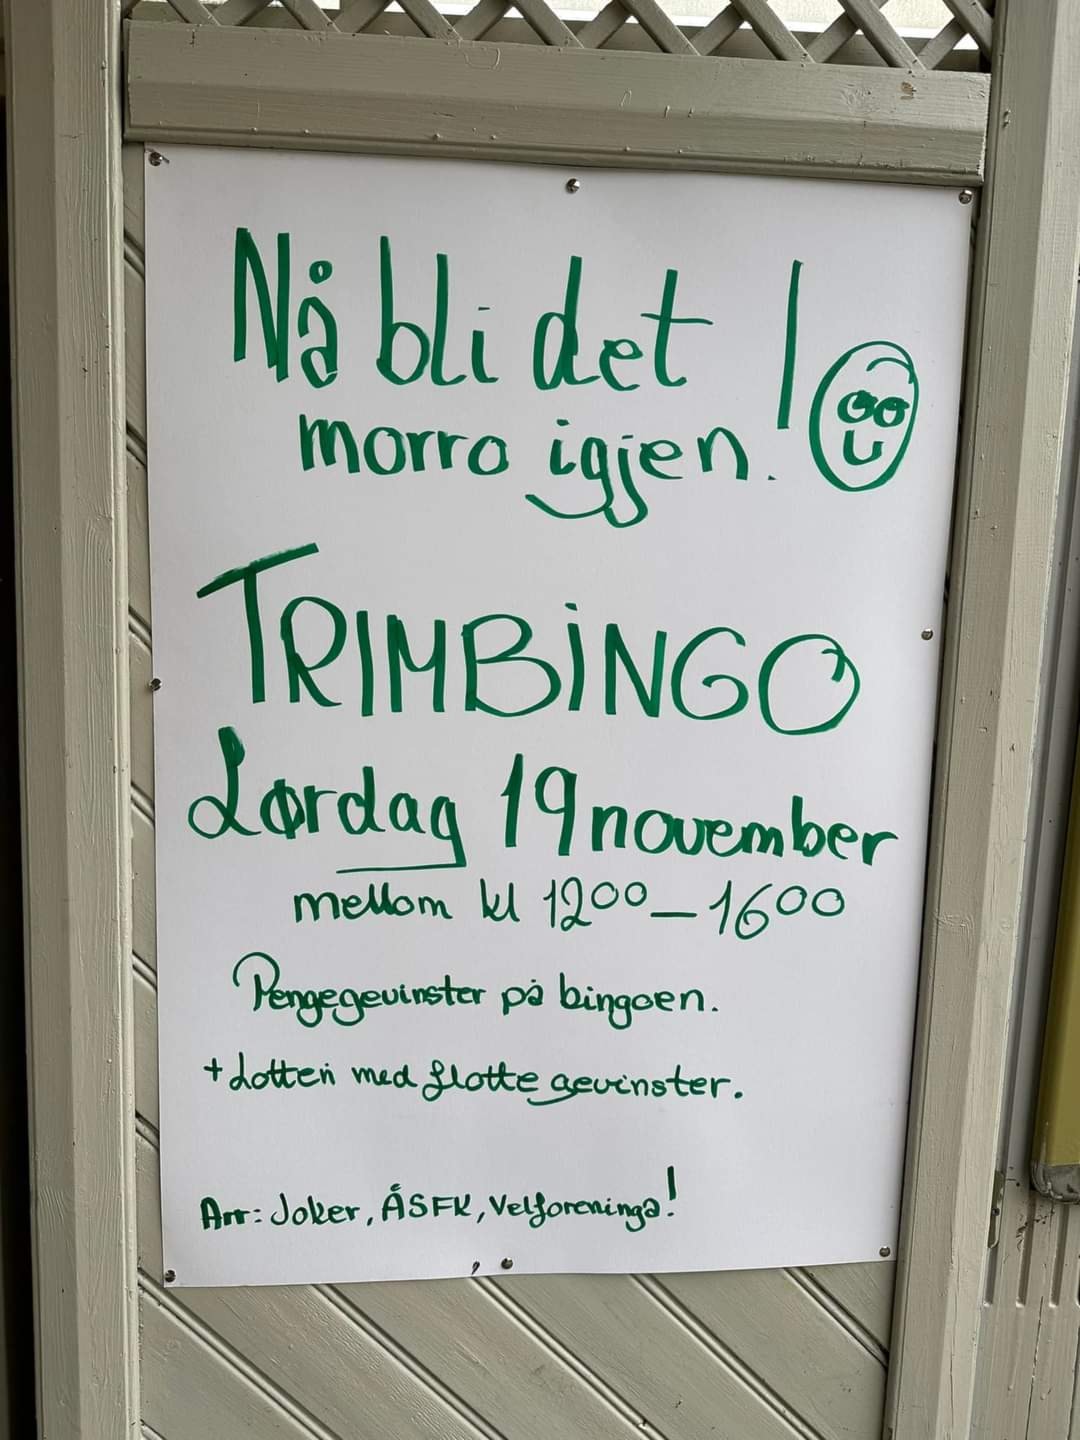 Nå bli det !
morro igjen.
TRIMBINGO
Lørdag 19 november
mellom kl 12⁰⁰ – 16⁰⁰
Pengegevinster på bingoen.
+ Lotteri med flotte gevinster.
Arr: Joker, ÅSFK, Velforeninga!